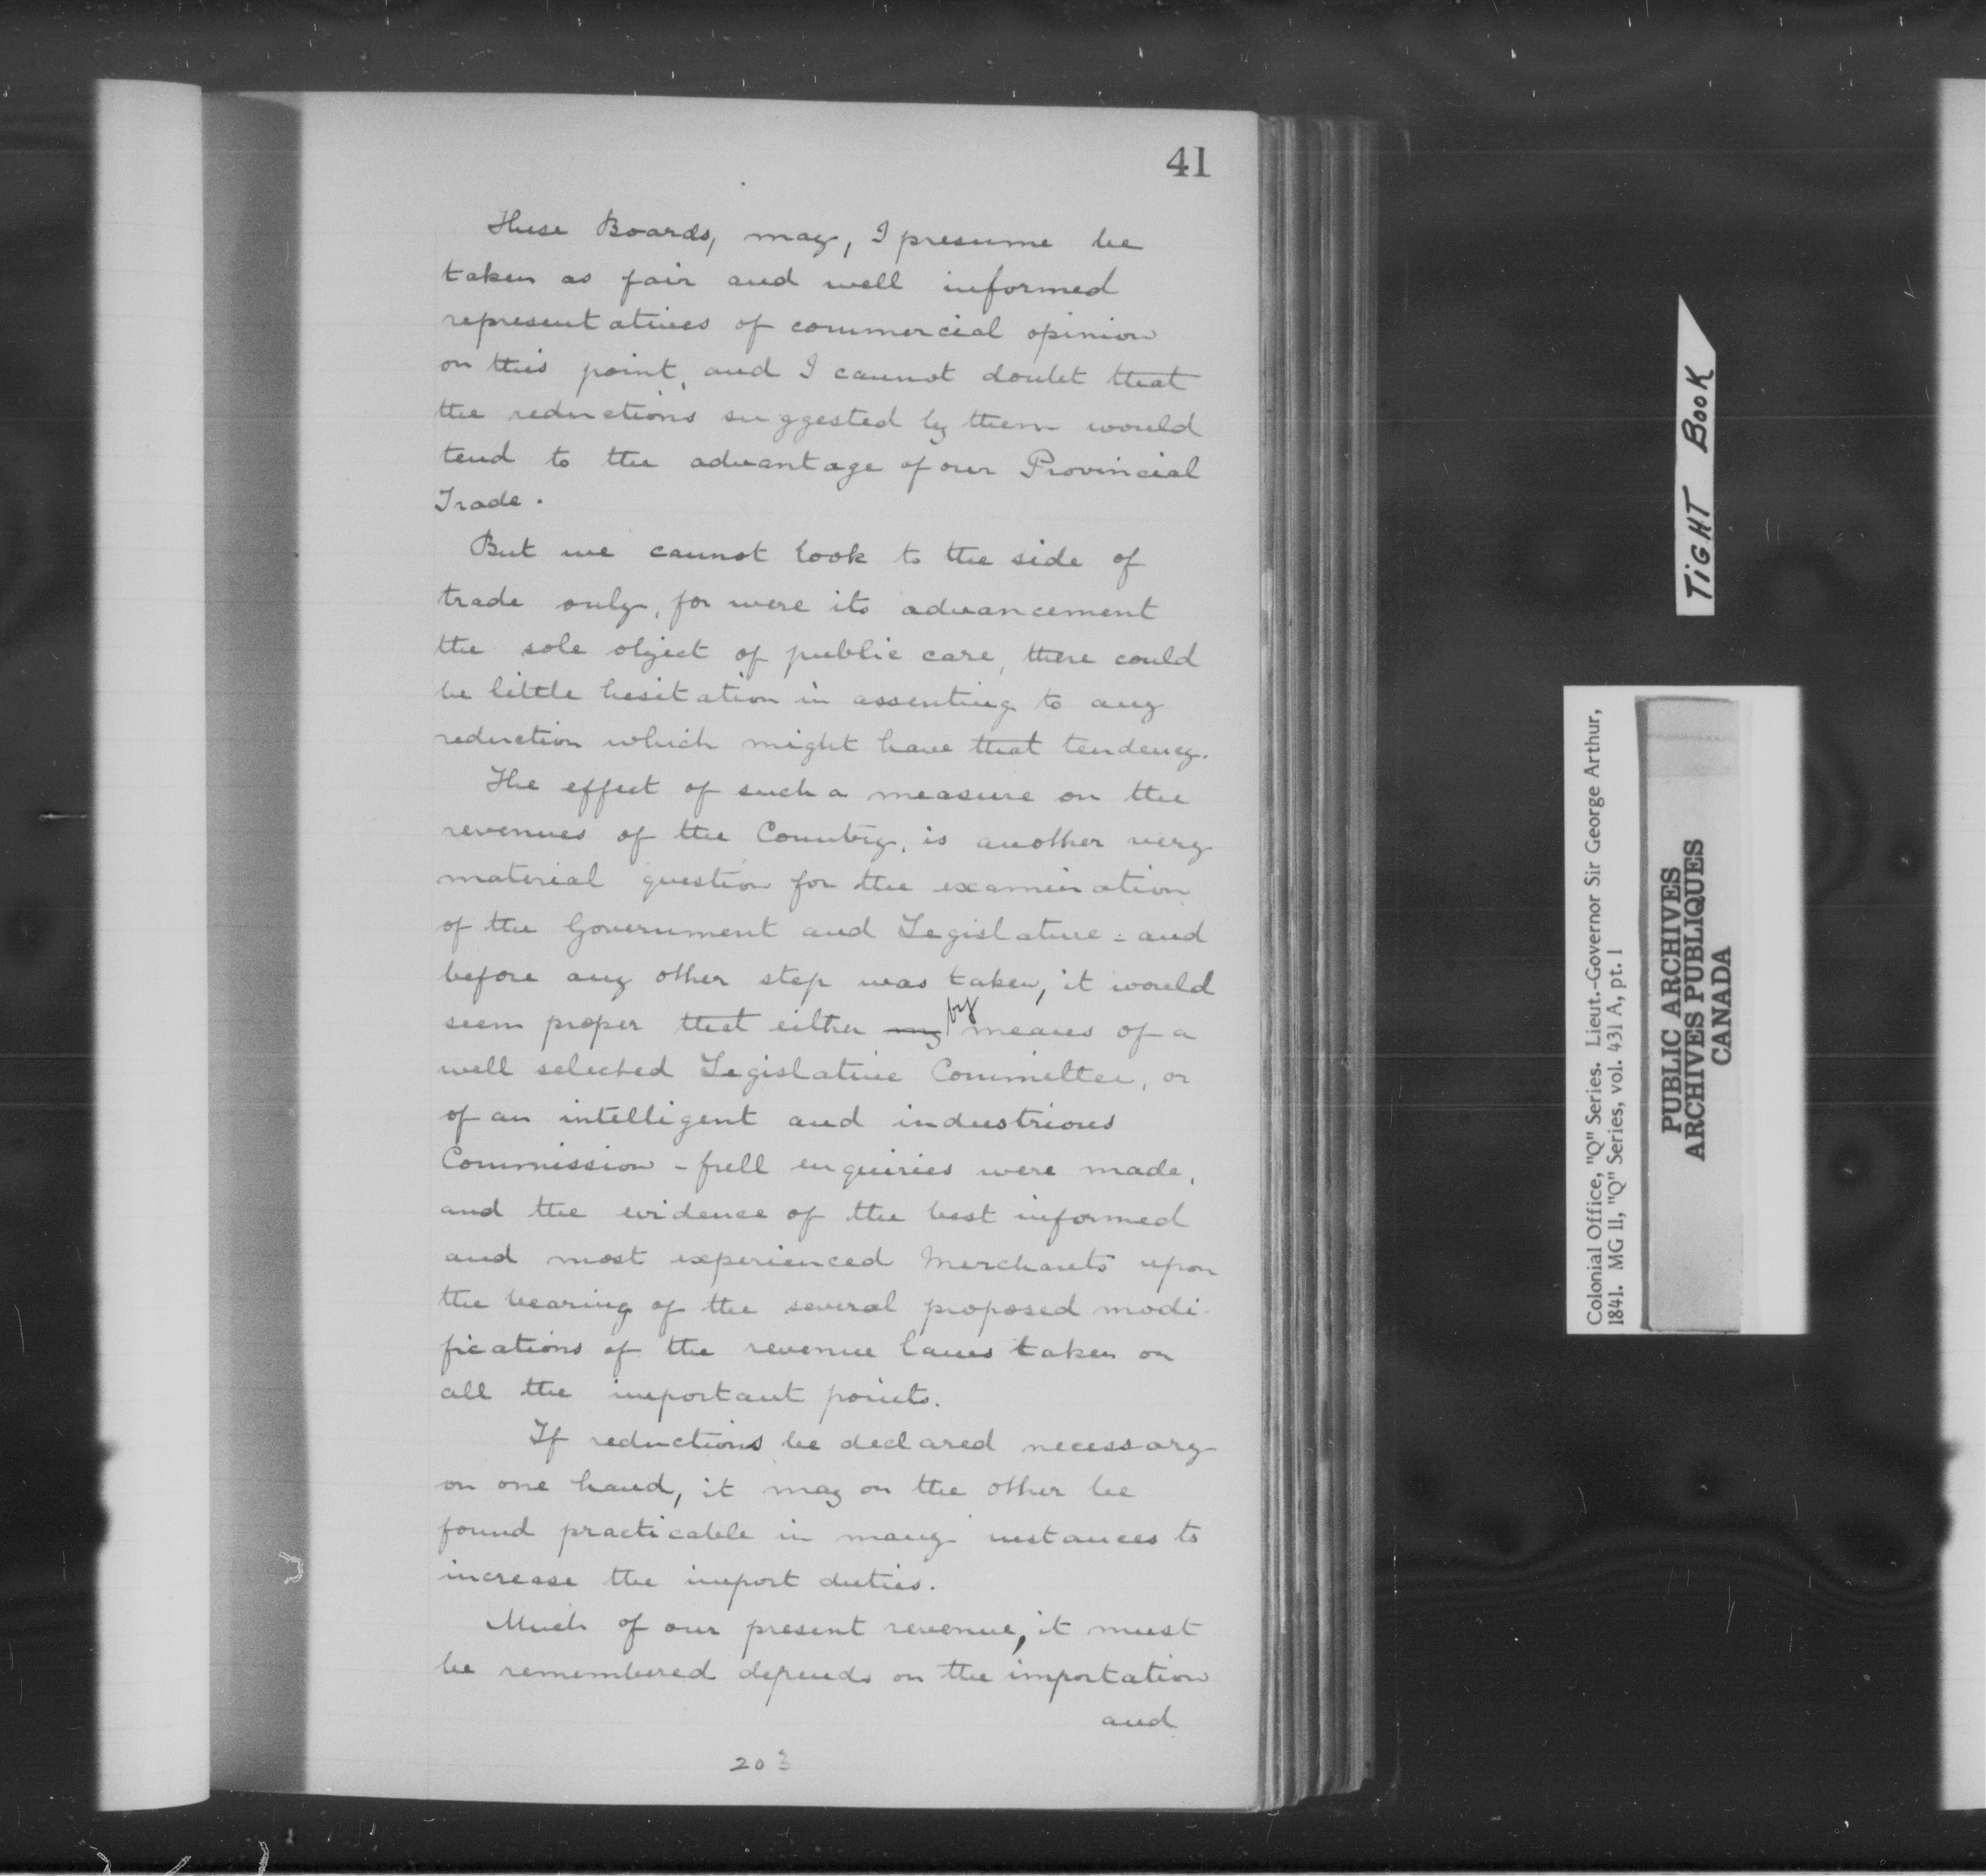 41
These Boards, may, I presume be
taken as fair and well informed
representatives of commercial opinion
on this point, and I cannot doubt that
the reductions suggested by them would
tend to the advantage of our Provincial
Trade.
But we cannot look to the side of
trade only, for were its advancement
the sole object of public care, there could
be little hesitation in assenting to any
reduction which might have that tendency.
The effect of such a measure on the
revenues of the Country, is another very
material question for the examination
of the Government and Legislature - and
before any other step was taken, it would
by
seem proper that either my means of a
well selected Legislative Committee, or
of an intelligent and industrious
Commission - full enquiries were made,
and the evidence of the best informed
and most experienced Merchants upon
the bearing of the several proposed modi-
fications of the revenue laws taken on
all the important points.
If reductions be declared necessary
on one hand, it may on the other be
found practicable in many instances to
increase the import duties.
Much of our present revenue, it must
be remembered depends on the importation
and
203
TIGHT BOOK
Colonial Office, "Q" Series. Lieut.-Governor Sir George Arthur,
1841. MG 11, "Q" Series, vol. 431 A, pt. 1
PUBLIC ARCHIVES
ARCHIVES PUBLIQUES
CANADA